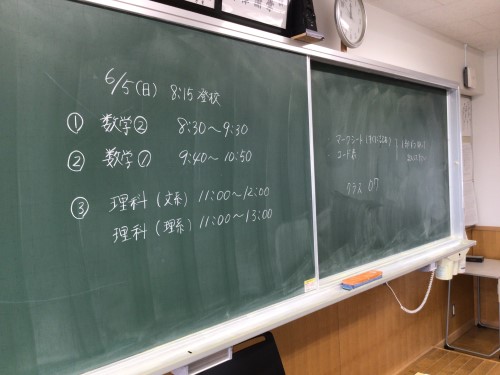 6/5(日) 8:15 登校
① 数学② 8:30〜9:30
② 数学① 9:40〜10:50
③ 理科(文系) 11:00〜12:00
理科(理系) 11:00〜13:00
マークシート
コード表
クラス 07